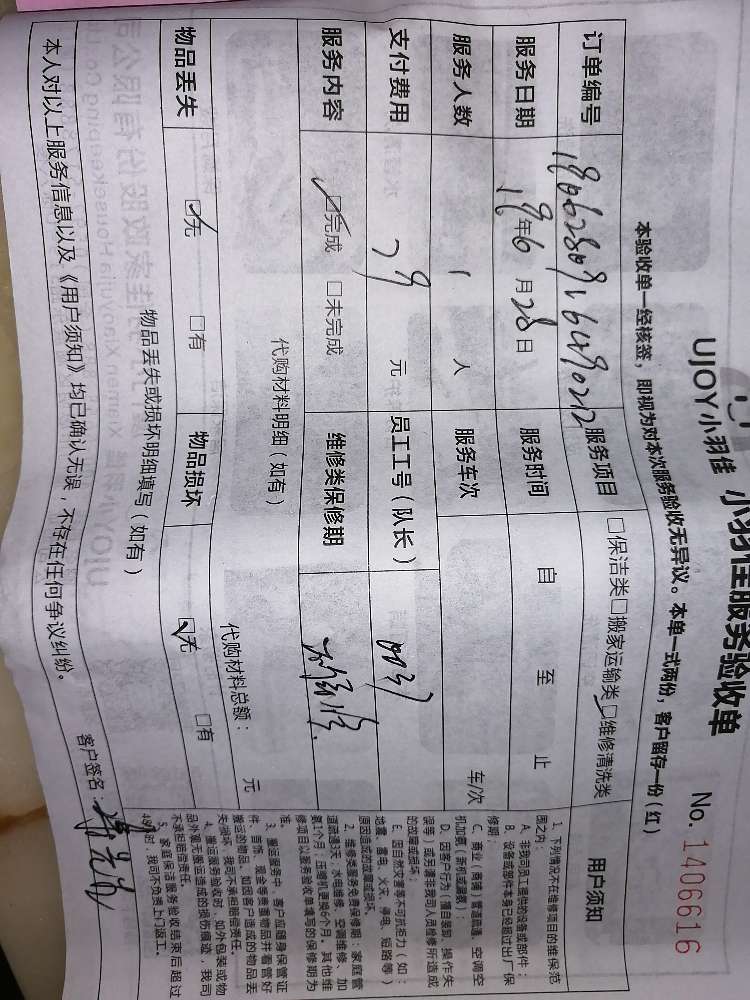 UJOY小羽佳 小羽佳服务验收单
No. 1406616
本验收单一经核签，即视为对本次服务验收无异议。本单一式两份，客户留存一份（红）
订单编号
服务项目 □保洁类□搬家运输类☑维修清洗类
用户须知
服务日期 19年6月28日 服务时间 自 至 止
服务人数 1 人 服务车次 车/次
支付费用 79 元 员工工号（队长）
服务内容 ☑完成 □未完成 维修类保修期
代购材料明细（如有） 代购材料总额： 元
物品丢失 ☑无 □有 物品损坏 ☑无 □有
物品丢失或损坏明细填写（如有）
本人对以上服务信息以及《用户须知》均已确认无误，不存在任何争议纠纷。
客户签名：
1、下列情况不在维修项目的维保范
围之内：
A、非我司员工提供的设备或部件；
B、设备或部件本身已经超过出厂保
修期；
C、商业（商铺）管道疏通、空调空
机加氨（新机或漏氨）；
D、因客户行为（擅自装卸、操作失
误等）或故请非我司人员维修所造成
的故障或损坏；
E、因自然灾害等不可抗拒力（如：
地震、雷电、火灾、停电、短路等）
原因造成的故障或损坏。
2、维修类服务免费保修期：家庭管
道疏通3天，水电维修、空调维修、加
氨1个月，压缩机更换6个月。其他维
修项目以服务验收单填写的保修期为
准。
3、搬运服务中，客户应随身保管证
件、首饰、现金等贵重物品并看管好
搬运的物品，如因客户造成的物品丢
失/损坏，我司不承担赔偿责任。
4、搬运服务验收时，如外包装或物
品外观无搬运造成的损伤痕迹，我司
不承担赔偿责任。
5、家庭保洁服务验收结束后超过
48小时，我司不负责上门返工。